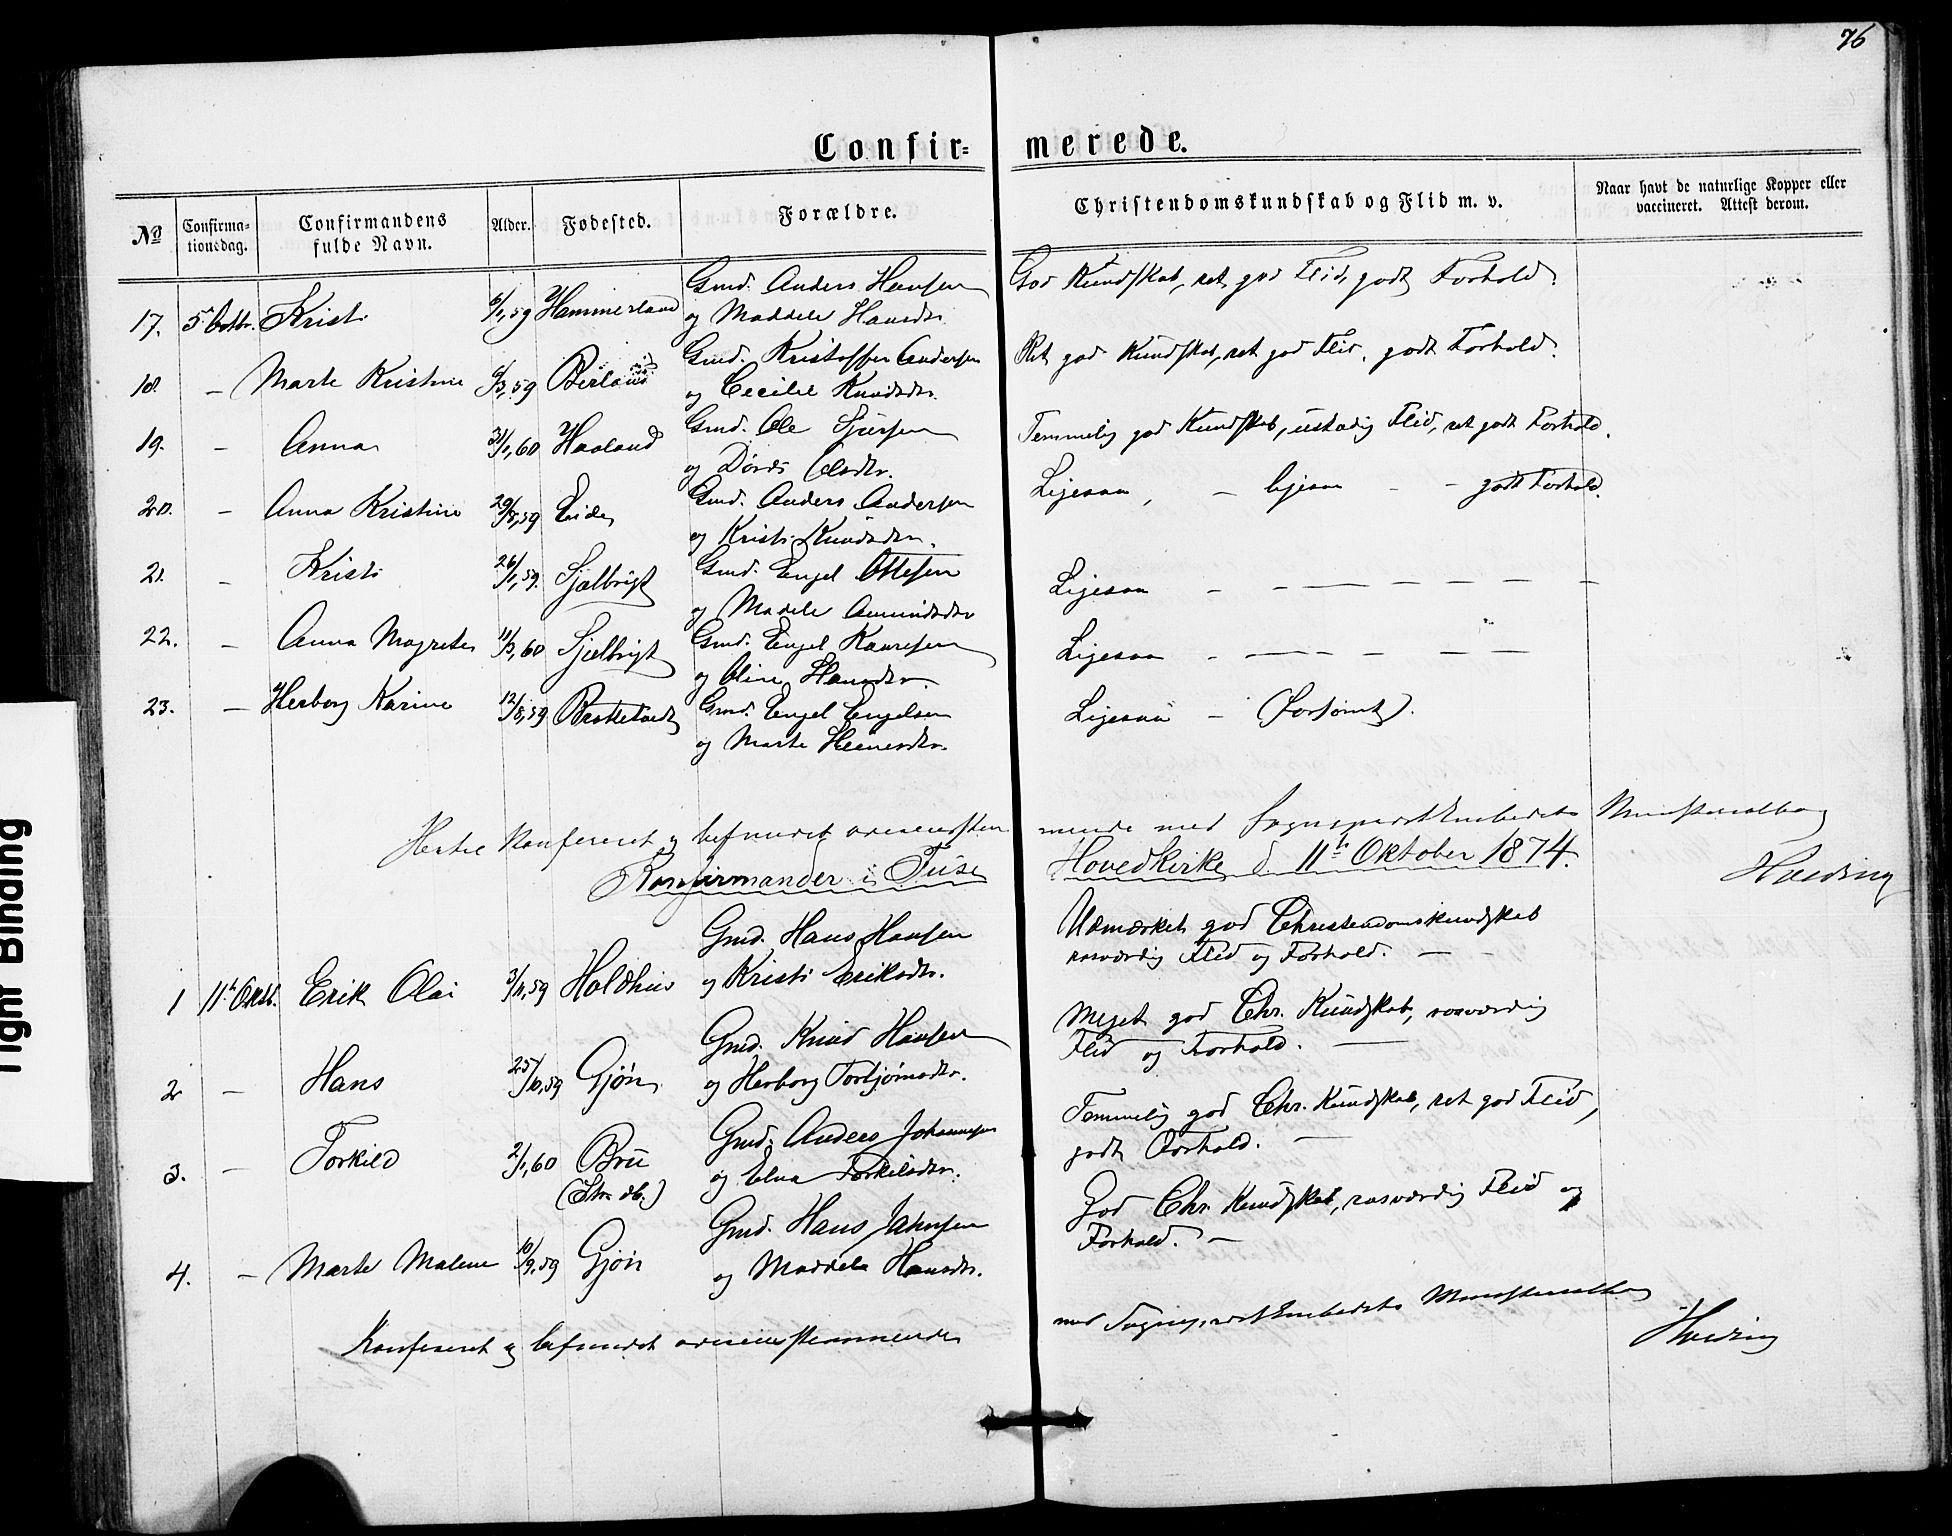 76
Confir= merede.
No Confirma-tionsdag. Confirmandens fulde Navn. Alder. Fødested. Forældre. Christendomskundskab og Flid m. v. Naar havt de naturlige Kopper eller vaccineret. Attest derom.
17. 5 Octbr. Kristi 6/1,59 Hammersland Gmd. Anders Hansen God Kundskab, ret god Flid, godt Forhold
og Maddele Hansdtr.
18. — Marte Kristine 6/3,59 Berland Gmd. Kristoffer Andersen Ret god Kundskab, ret god Flid, godt Forhold.
og Cecilie Knudsdtr.
19. — Anna 31/1,60 Haaland Gmd. Ole Sjursen Temmelig god Kundskab, ustadig Flid, ret godt Forhold.
og Dordi Olsdtr.
20. — Anna Kristine 29/8,59 Eide Gmd. Anders Andersen Ligesaa, — ligesaa — godt Forhold.
og Kristi Knudsdtr.
21. — Kristi 26/1,59. Sjælbrigt Gmd. Engel Ottesen Ligesaa — — — — — — —
og Madele Amundsdtr
22. — Anna Magrete 11/3,60 Sjælbrigt Gmd. Engel Ligesaa — — — — — —
og Oline Hansdtr.
23. — Herborg Karine 12/8,59 Gmd. Engel Engelsen Ligesaa — (Forsømt).
og Marte
Konfereret og befundet overensstemmende med Sognepræstembedets Ministerialbog
Konfirmander i Fuse Hovedkirke d. 11te Oktober 1874.
Gmd. Hans Hansen Udmærket god Christendomskundskab
1 11te Oktb. Erik Olai 3/11,59 Holdhus og Kristi Eriksdtr. rosværdig Flid og Forhold. —
Gmd. Knud Hansen Meget god Chr. Kundskab, rosværdig
2 — Hans 25/10,59 Gjøn og Herborg Torbjørnsdtr. Flid og Forhold. —
Gmd. Anders Johannesen Temmelig god Chr. Kundskab, ret god Flid,
3. — Torkild 2/1,60 Bru og Elna Torkildsdtr. godt Forhold. —
Gmd. Hans Jahnsen God Chr. Kundskab, rosværdig Flid og
4. — Marte Malene 10/9,59 Gjøn og Maddela Hansdtr. Forhold. —
Konfereret og befundet overensstemmende med Sognepræstembedets Ministerialbog
Tight Binding